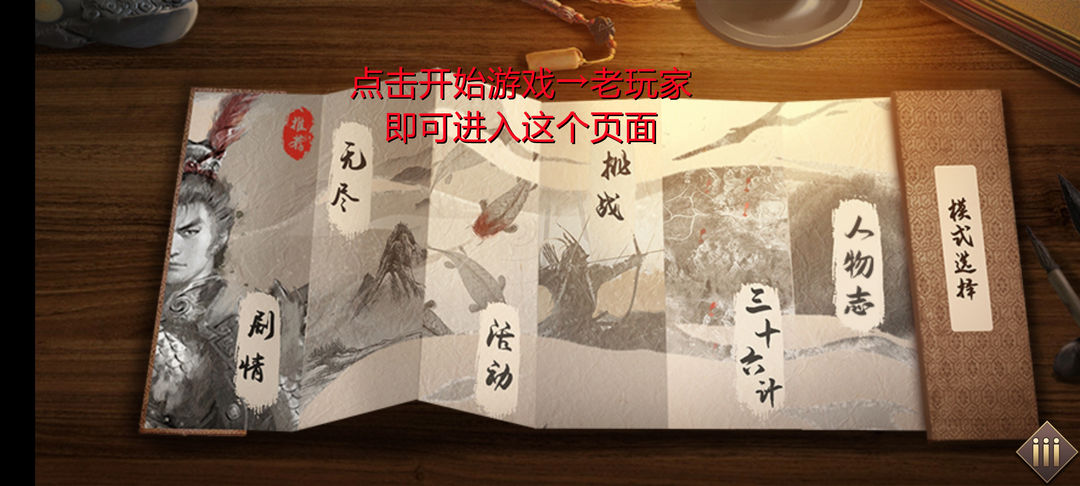 点击开始游戏→老玩家
即可进入这个页面
推荐
剧情
无尽
活动
挑战
三十六计
人物志
模式选择
iii